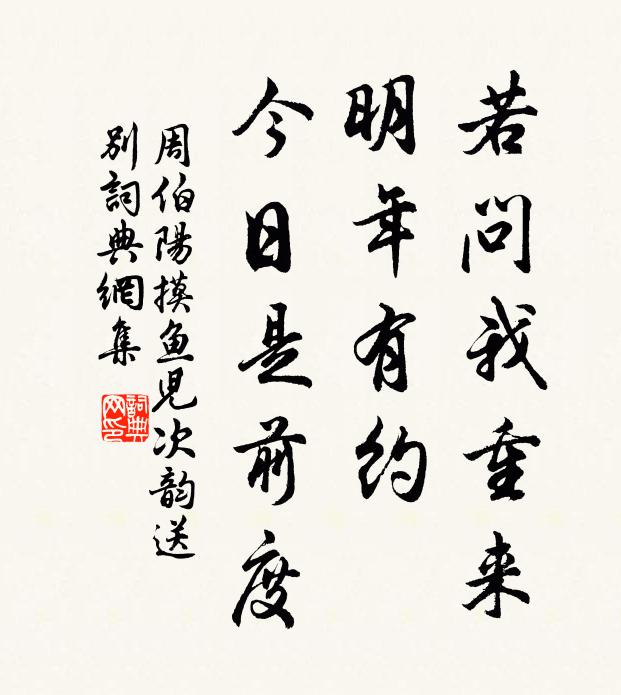 若问我重来
明年有约
今日是前度
周伯陽摸鱼児次韵送
别詞典網集
詞典网印